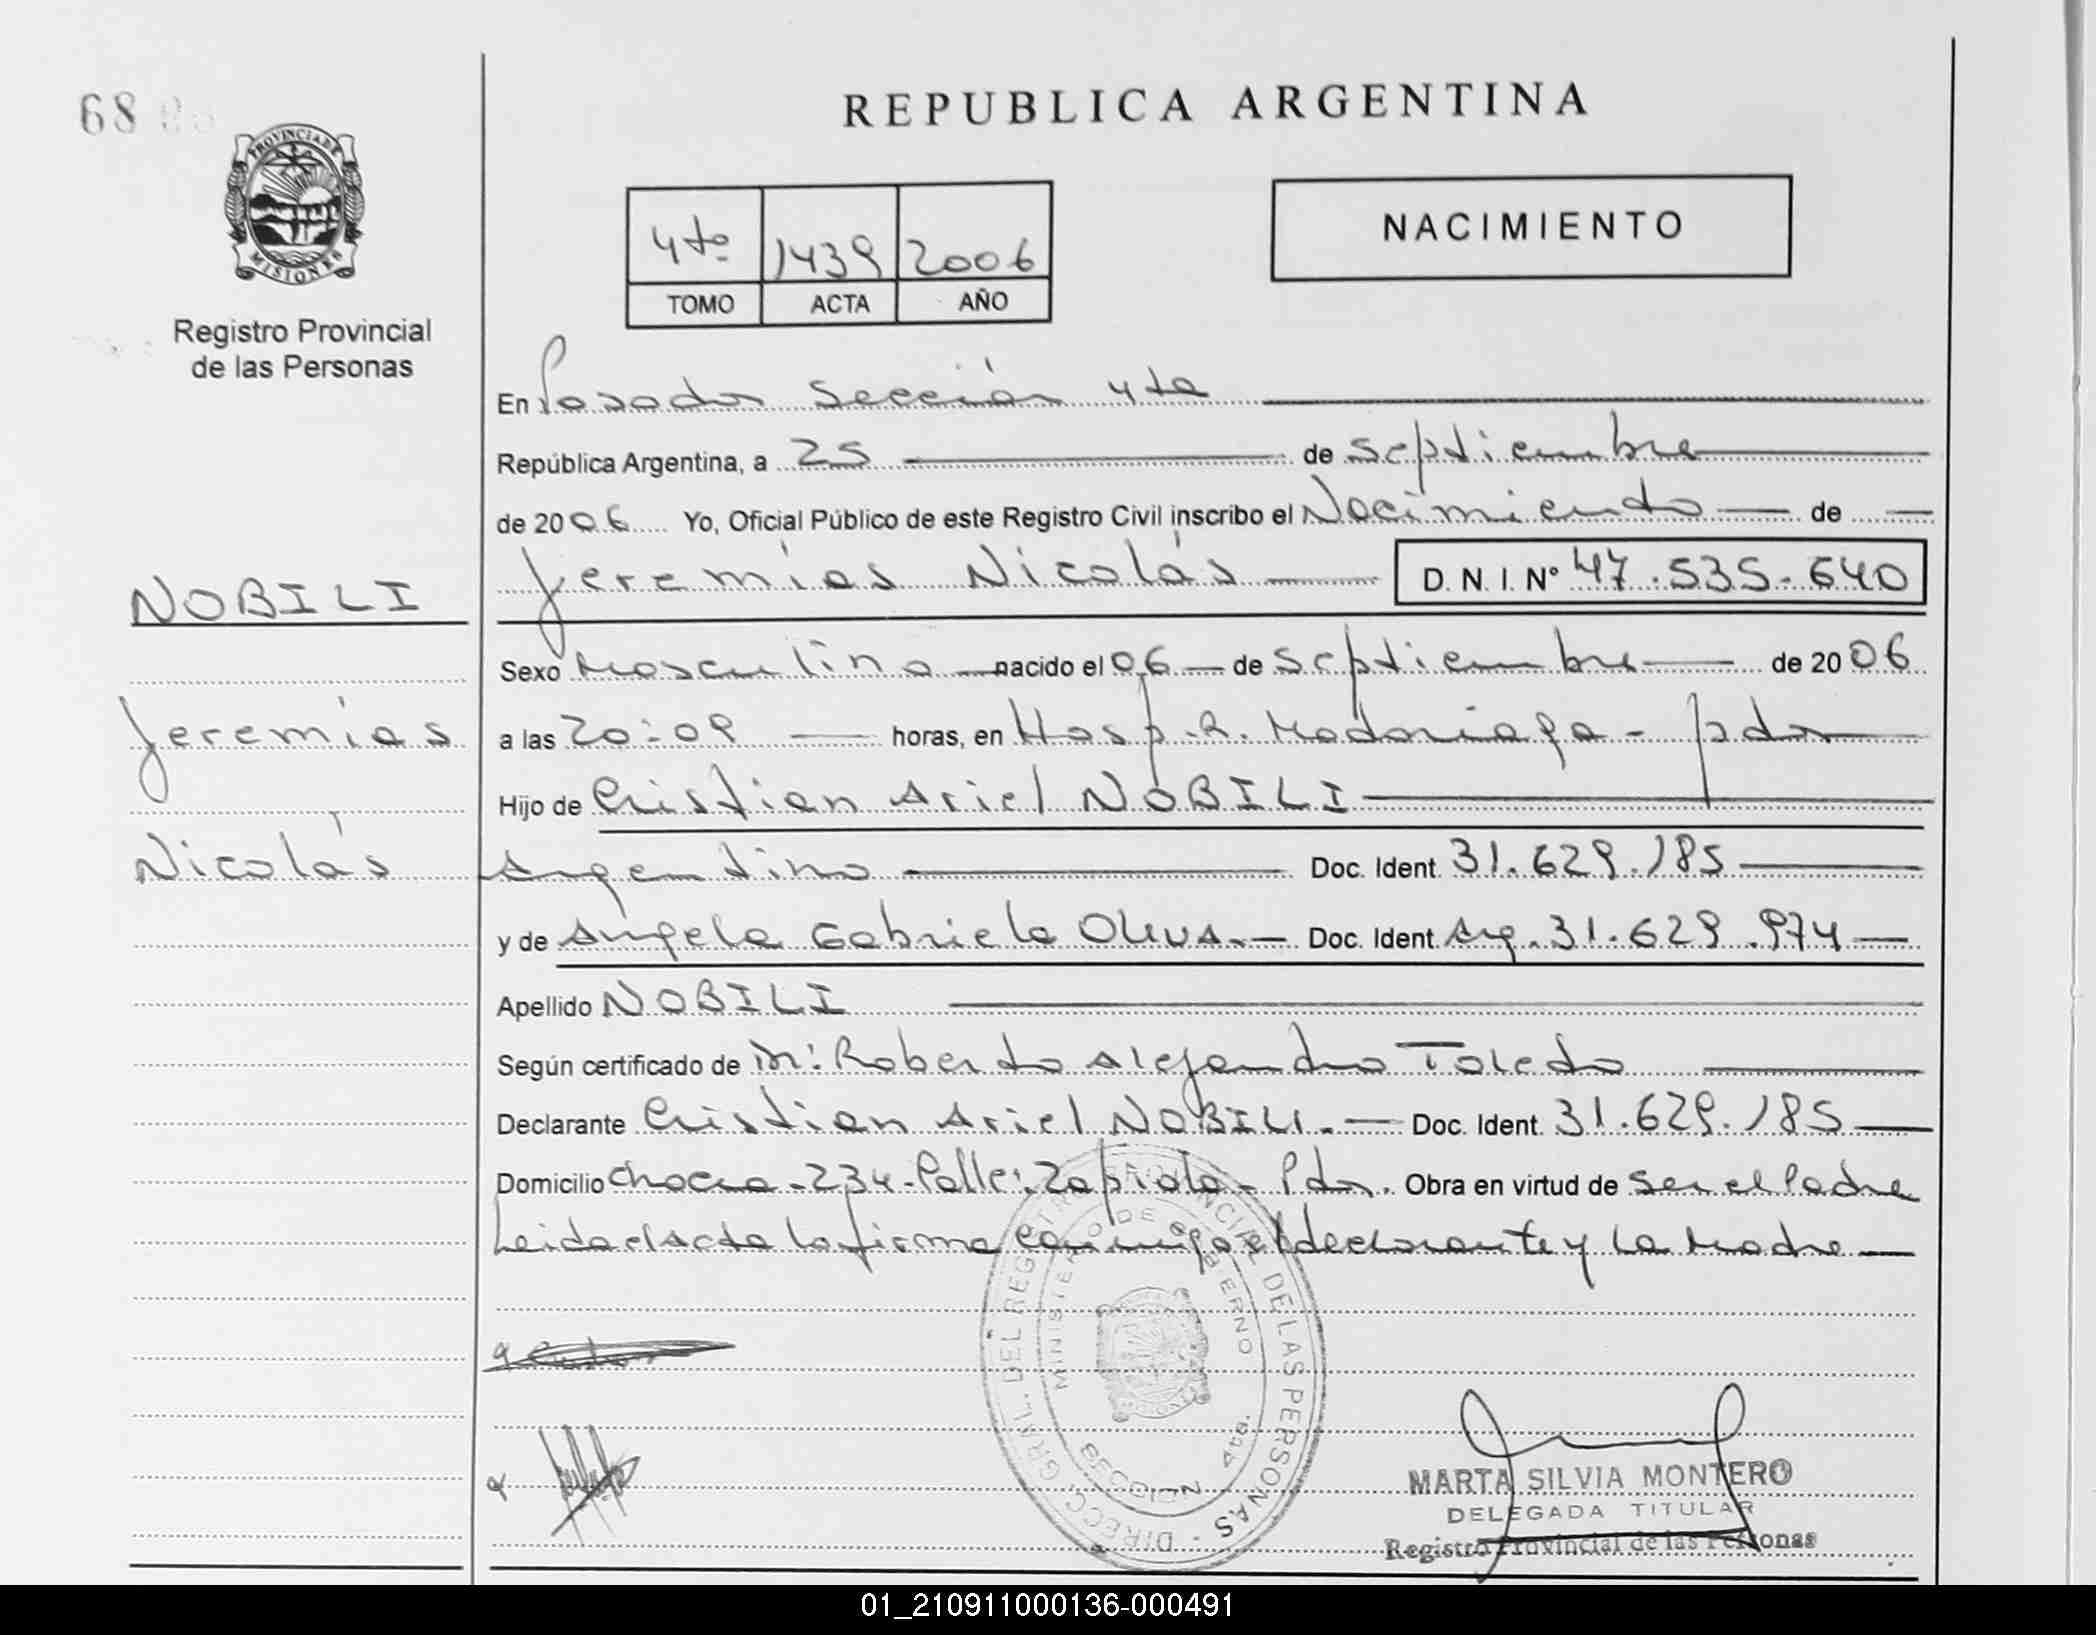 68
REPUBLICA ARGENTINA
PROVINCIA DE
MISIONES
Registro Provincial
de las Personas
4to 1439 2006
TOMO ACTA AÑO
NACIMIENTO
En Posadas Sección 4ta
República Argentina, a 25 de Septiembre
de 2006 Yo, Oficial Público de este Registro Civil inscribo el Nacimiento de
Jeremías Nicolás D. N. I. N° 47.535.640
NOBILI
Sexo Masculino nacido el 06 de Septiembre de 2006
Jeremías
a las 20:09 horas, en Hosp. R. Madariaga - pdas
Hijo de Cristian Ariel NOBILI
Nicolás
Argentino Doc. Ident. 31.629.185
y de Angela Gabriela Oliva.- Doc. Ident. Arg. 31.629.974
Apellido NOBILI
Según certificado de Roberto Alejandro Toledo
Declarante Cristian Ariel NOBILI. Doc. Ident. 31.629.185
Domicilio Chacra-234-Calle: Zapiola - Pdas. Obra en virtud de Ser el Padre
Leida el Acta la firma conmigo el declarante y La Madre
DIREC. GRAL. DEL REGISTRO PROVINCIAL DE LAS PERSONAS
MINISTERIO DE GOBIERNO
SECCION 4ta.
MARTA SILVIA MONTERO
DELEGADA TITULAR
Registro Provincial de las Personas
01_210911000136-000491